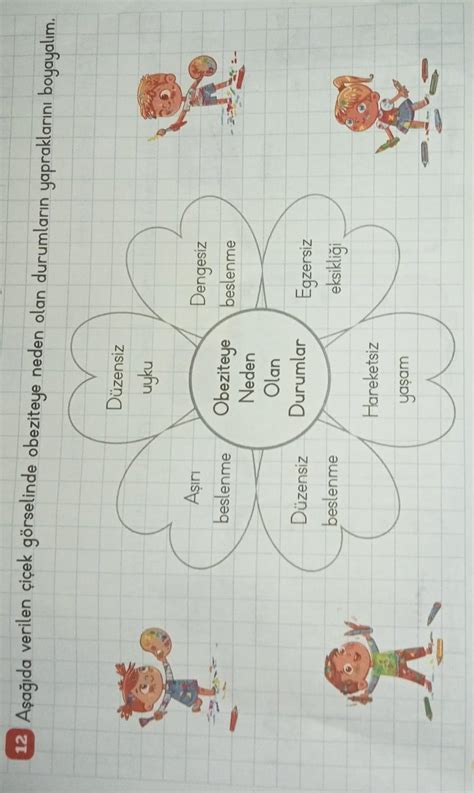 12 Aşağıda verilen çiçek görselinde obeziteye neden olan durumların yapraklarını boyayalım.
Düzensiz
uyku
Aşırı
beslenme
Dengesiz
beslenme
Obeziteye
Neden
Olan
Durumlar
Düzensiz
beslenme
Egzersiz
eksikliği
Hareketsiz
yaşam